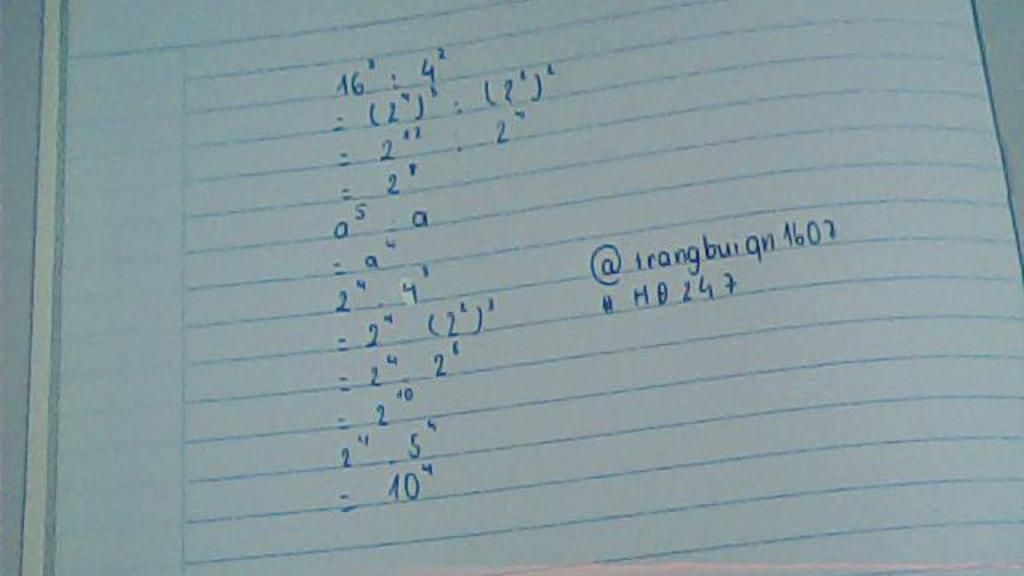 16³ : 4²
= (2⁴)³ : (2²)²
= 2¹² : 2⁴
= 2⁸
a⁵ : a
= a⁴
2⁴ . 4³
= 2⁴ (2²)³
= 2⁴ . 2⁶
= 2¹⁰
2⁴ . 5⁴
= 10⁴
@trangbuiqn1607
# HĐ247